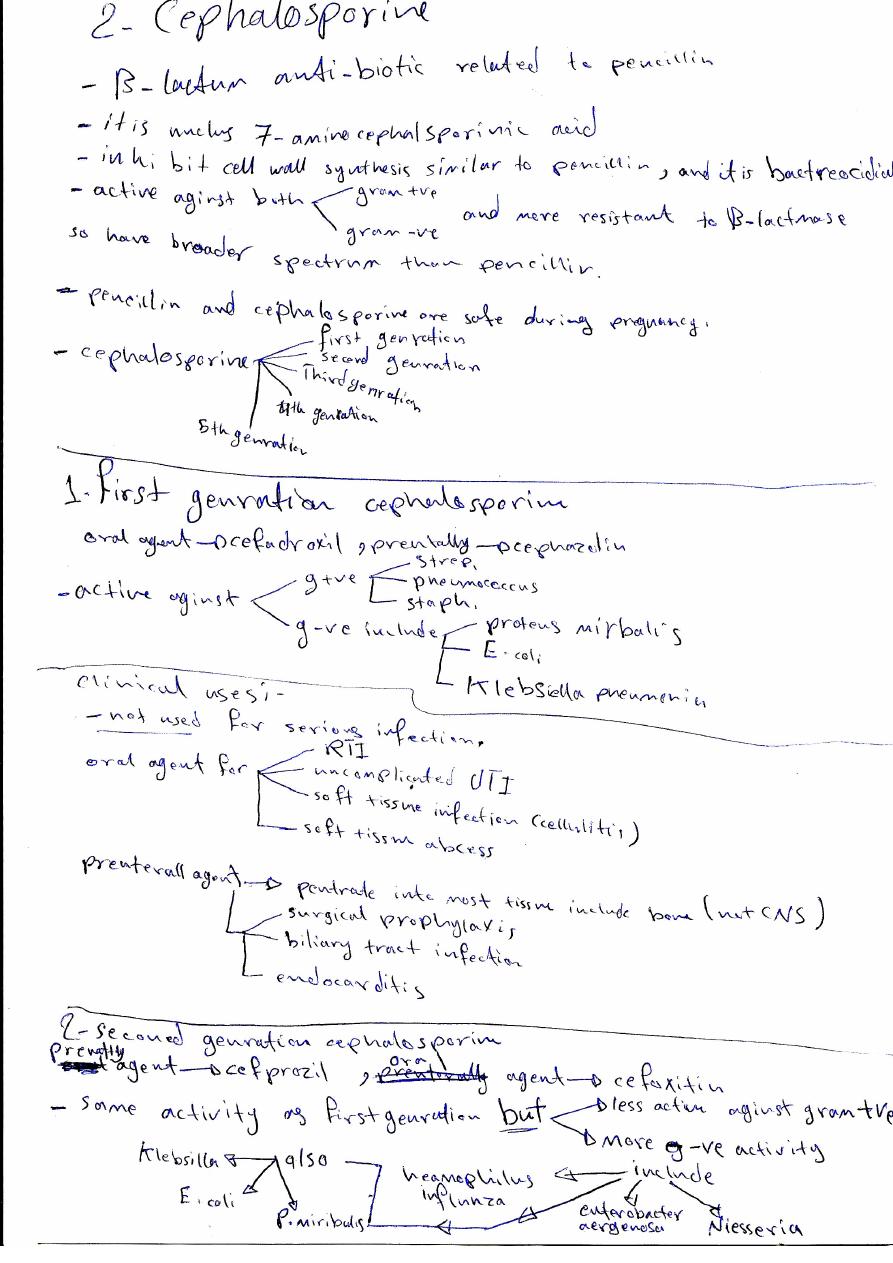 2- Cephalosporine
- β-lactum anti-biotic related to pencillin
- it is nuclus 7-aminocephalsporinic acid
- inhi bit cell wall synthesis similar to pencillin, and it is bactreocidial
- active aginst both gram +ve
gram -ve and more resistant to β-lactmase
so have broader spectrum than pencillin.
- pencillin and cephalosporine are safe during pregnancy.
- cephalosporine first genration
second genration
Third genration
4th genration
5th genration
1. First genration cephalosporim
oral agent → cefadroxil, prentally → cephazolin
- active aginst g+ve strep.
pneumococcus
staph.
g-ve include proteus mirbalis
E. coli
Klebsiella pneumonia
clinical uses:-
- not used for serious infection.
oral agent for RTI
uncomplicated UTI
soft tissue infection (cellulitis)
soft tissm abcess
prenterall agent → pentrate into most tissue include bone (not CNS)
surgical prophylaxis
biliary tract infection
endocarditis
2- seconed genration cephalosporim
prenatly agent → cefprozil, oral agent → cefoxitin
- same activity as first genration but less active aginst gram +ve
more g-ve activity
include
Klebsilla also heamophilus influnza
E. coli
P. miribulis
enterobacter aergenosa
Niesseria